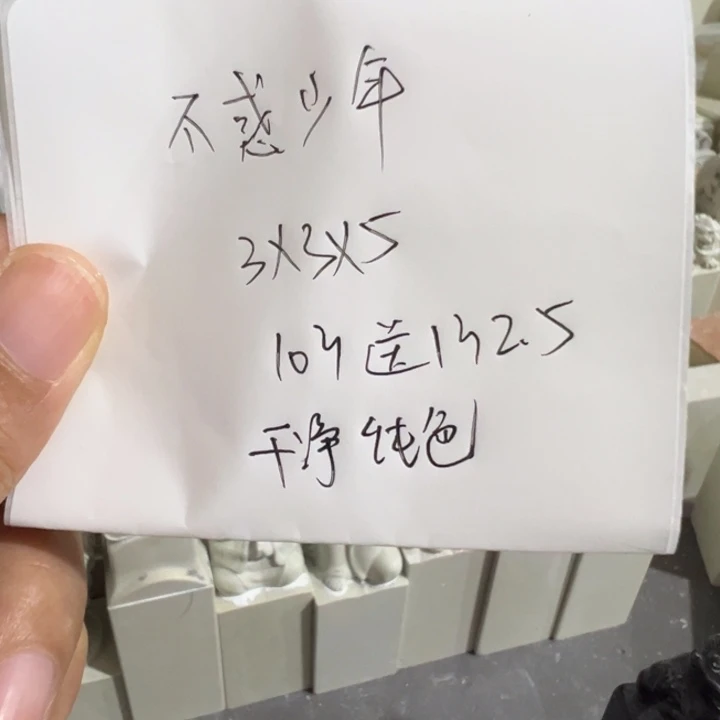 不惑少年
3X3X5
10方送1方2.5
干净 纯色